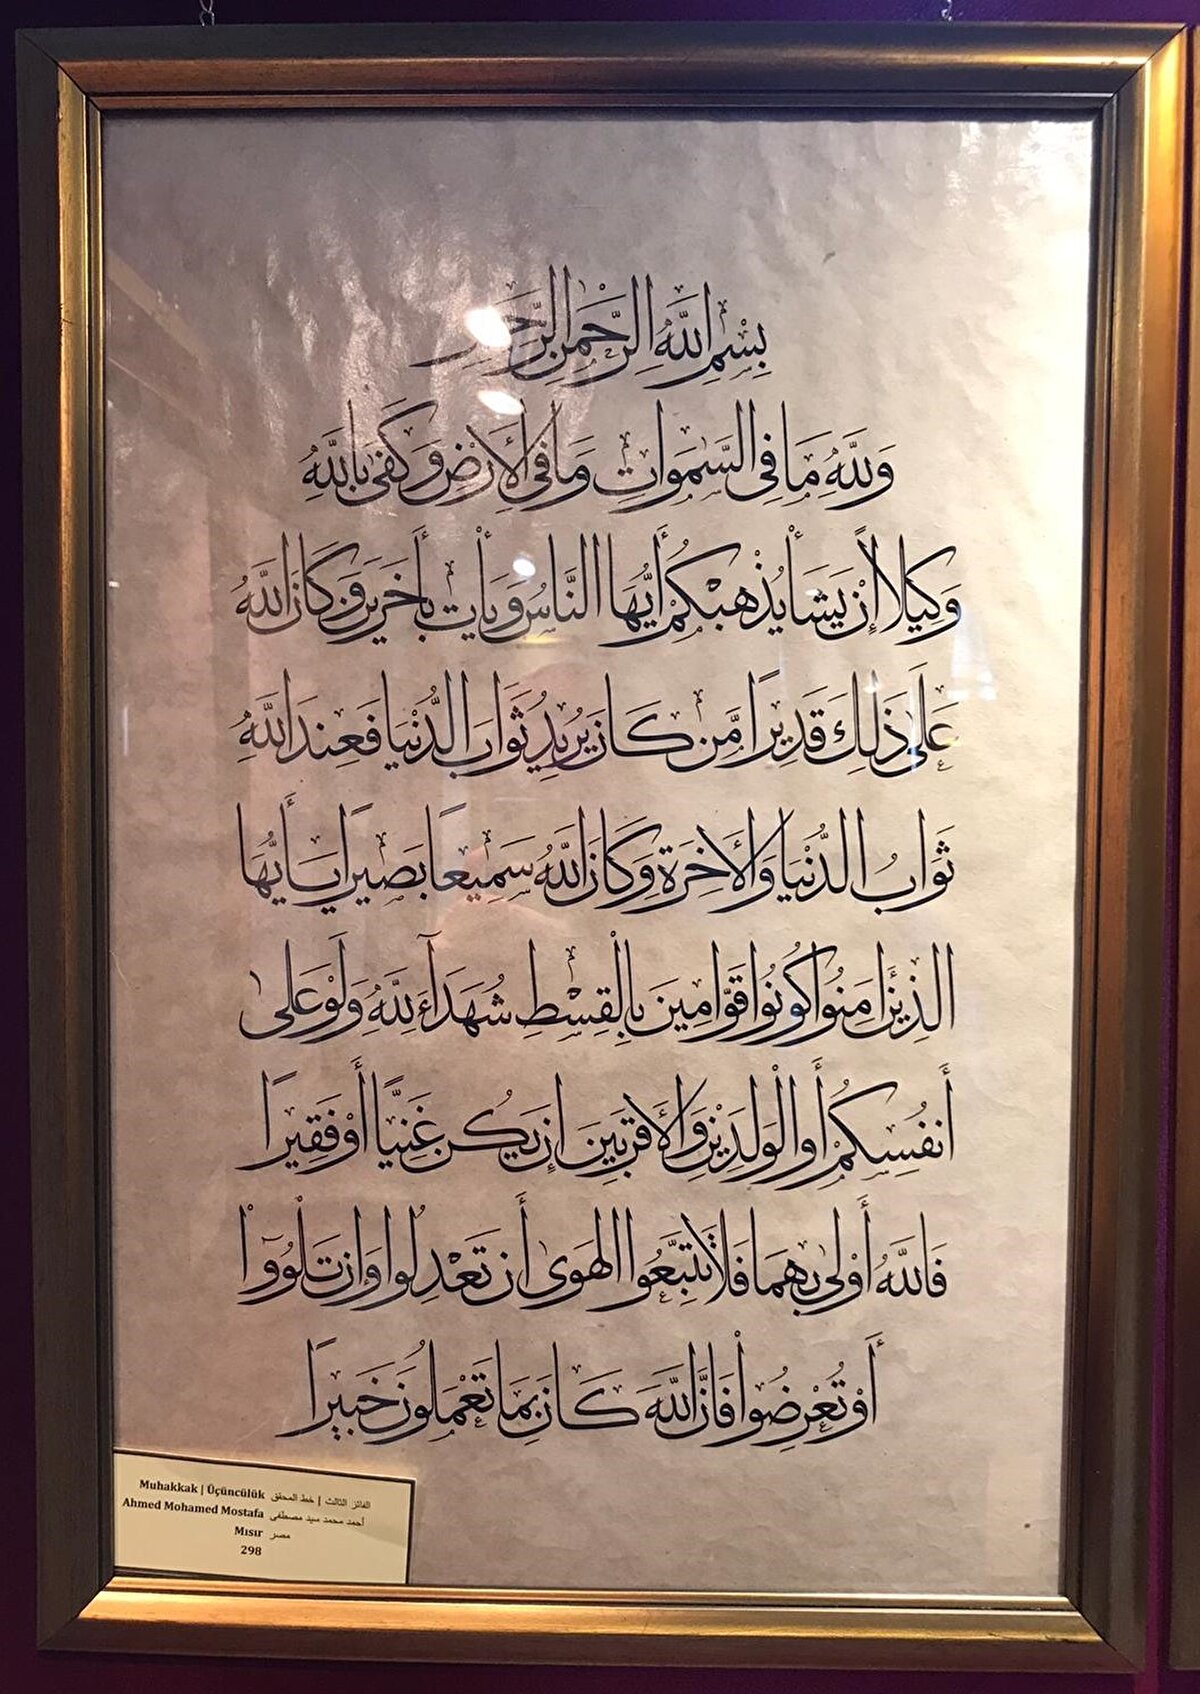 بِسْمِ اللَّهِ الرَّحْمٰنِ الرَّحِيمِ
وَلِلَّهِ مَا فِي السَّمٰوَاتِ وَمَا فِي الْأَرْضِ وَكَفَىٰ بِاللَّهِ
وَكِيلًا إِنْ يَشَأْ يُذْهِبْكُمْ أَيُّهَا النَّاسُ وَيَأْتِ بِأَخَرِينَ وَكَانَ اللَّهُ
عَلَىٰ ذَٰلِكَ قَدِيرًا مَّن كَانَ يُرِيدُ ثَوَابَ الدُّنْيَا فَعِندَ اللَّهِ
ثَوَابُ الدُّنْيَا وَالْأَخِرَةِ وَكَانَ اللَّهُ سَمِيعًا بَصِيرًا يَا أَيُّهَا
الَّذِينَ أَمَنُوا كُونُوا قَوَّامِينَ بِالْقِسْطِ شُهَدَآءَ لِلَّهِ وَلَوْ عَلَىٰ
أَنفُسِكُمْ أَوِ الْوَلِدَيْنِ وَالْأَقْرَبِينَ إِن يَكُن غَنِيًّا أَوْ فَقِيرًا
فَاللَّهُ أَوْلَىٰ بِهِمَا فَلَا تَتَّبِعُوا الْهَوَىٰ أَن تَعْدِلُوا وَإِن تَلْوُوٓا
أَوْ تُعْرِضُوا فَإِنَّ اللَّهَ كَانَ بِمَا تَعْمَلُونَ خَبِيرًا
Muhakkak | Üçüncülük الفائز الثالث | خط المحقق
Ahmed Mohamed Mostafa أحمد محمد سيد مصطفى
Mısır مصر
298